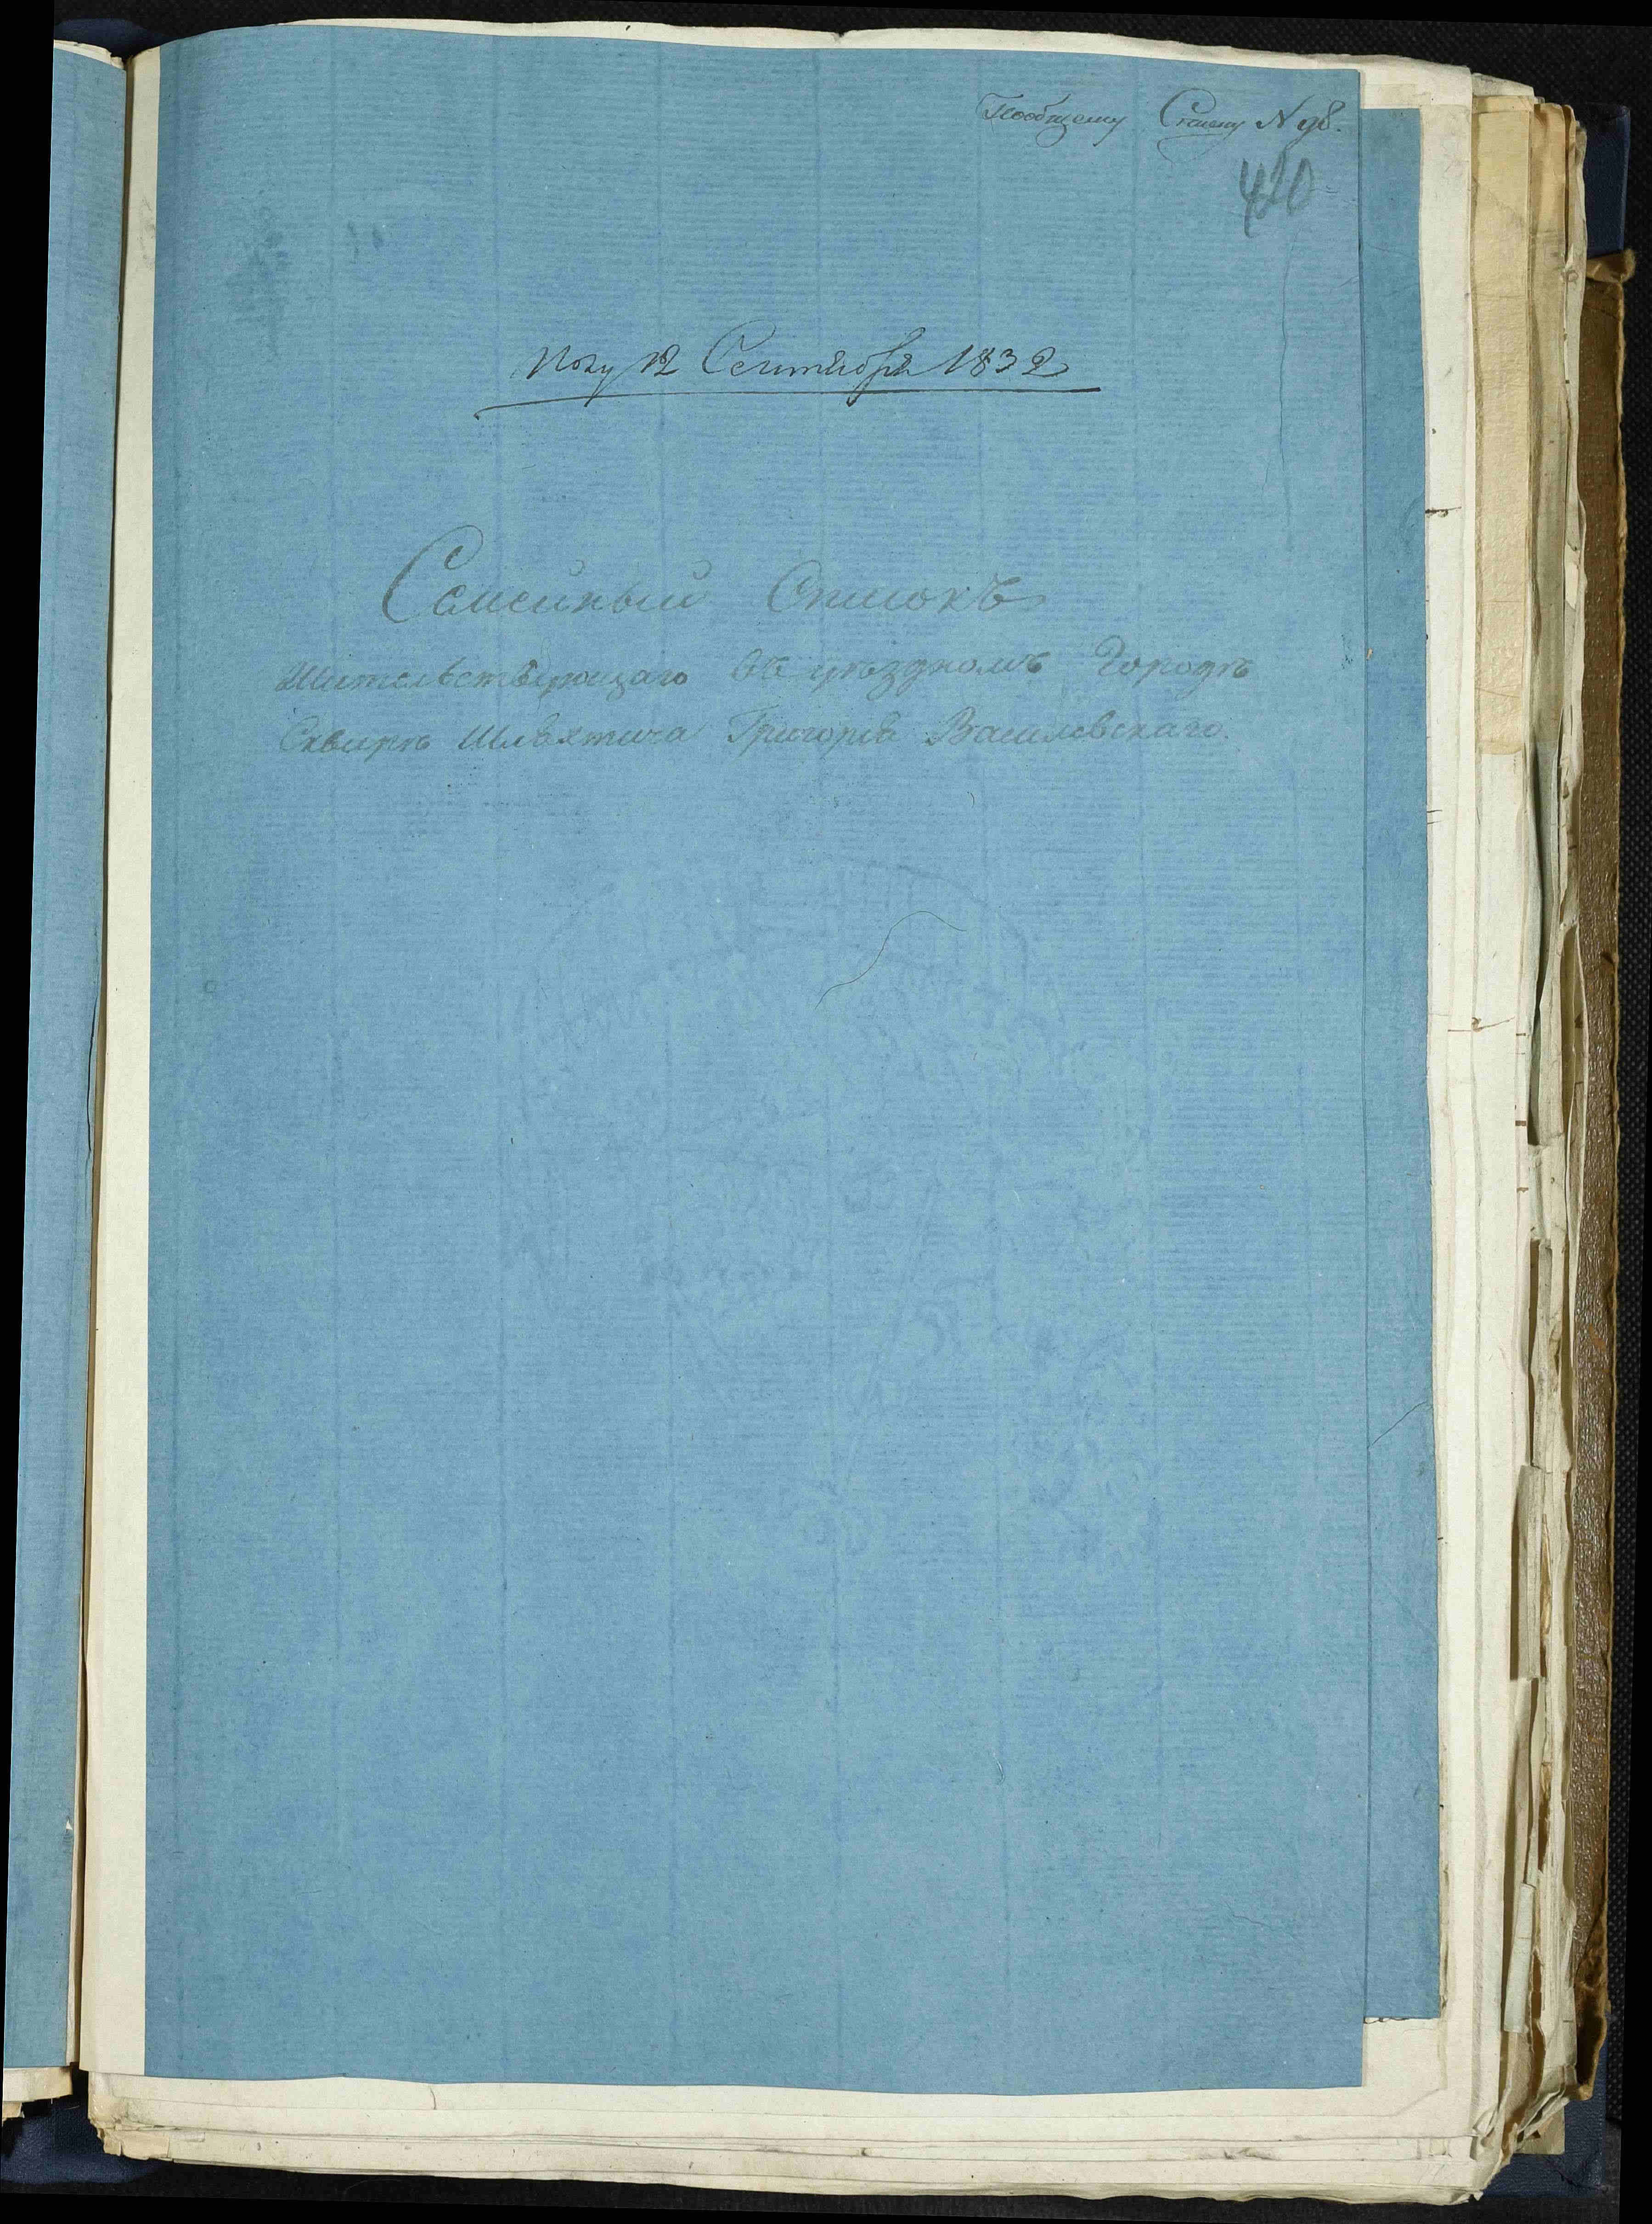 Пообщему Списку N 98.
420
Полу 12 Сентября 1832
Семейный Списокъ
Жительствующаго въ уѣздномъ Городѣ
Сквирѣ Шляхтича Григорія Василевскаго.